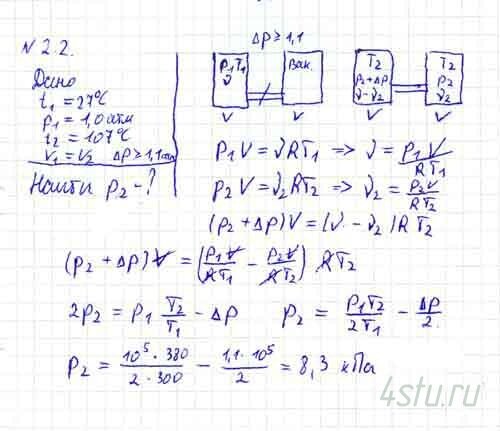 N 2.2.
Дано
t₁ = 27°C
p₁ = 1,0 атм
t₂ = 107°C
V₁ = V₂ Δp ≥ 1,1 атм
Найти p₂ - ?
Δp ≥ 1,1
P₁T₁
ν
Вак.
V V
T₂
P₂+Δp
ν-ν₂
V
T₂
P₂
ν₂
V
P₁V = νRT₁ => ν = P₁V/RT₁
p₂V = ν₂RT₂ => ν₂ = p₂V/RT₂
(p₂ + Δp)V = (ν - ν₂)RT₂
(p₂ + Δp)V = (P₁V/RT₁ - P₂V/RT₂) RT₂
2p₂ = p₁ T₂/T₁ - Δp p₂ = P₁T₂/2T₁ - Δp/2.
P₂ = 10⁵·380/2·300 - 1,1·10⁵/2 = 8,3 кПа
4stu.ru